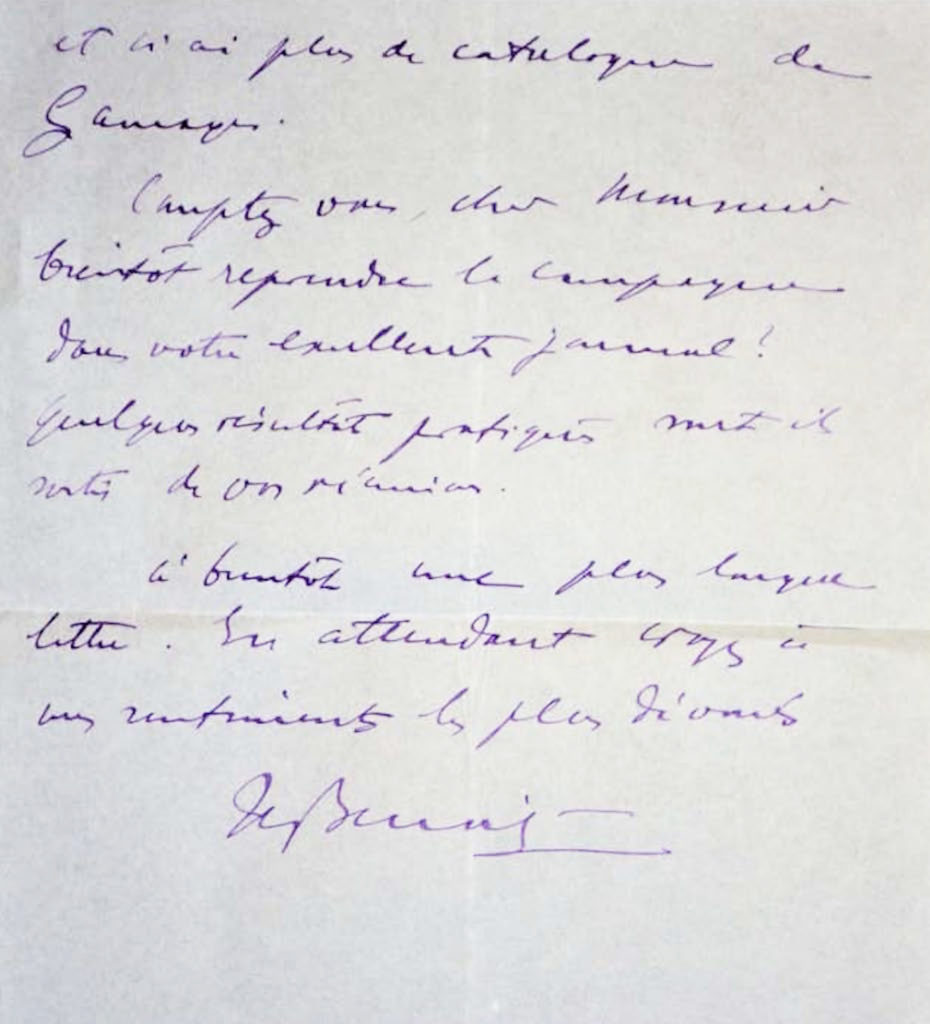 et n'ai plus de catalogue de
Gamages.
Comptez vous, cher Monsieur
bientôt reprendre la campagne
dans votre excellente journal ?
quelques résultats pratiques sont ils
sortis de vos réunions.
à bientôt une plus longue
lettre. En attendant croyez à
mes sentiments les plus dévoués